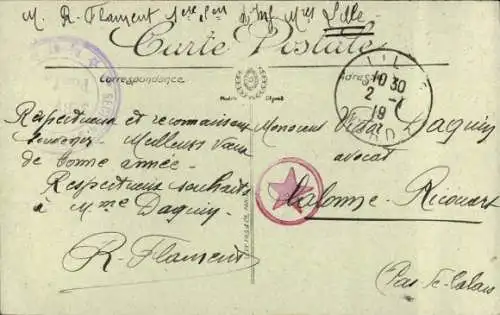 M. R. Flament 1ère Son d'Inf Mres Lille
Carte Postale
Correspondance
Adresse
LILLE
10 30
2 -1
19
NORD
Respectueux et reconnaissant
souvenir Meilleurs Vœux
de bonne année.
Respectueux souhaits
à Mme Daquin
R. Flament
Monsieur Victor Daquin
avocat
Calonne-Ricouart
Pas-de-Calais